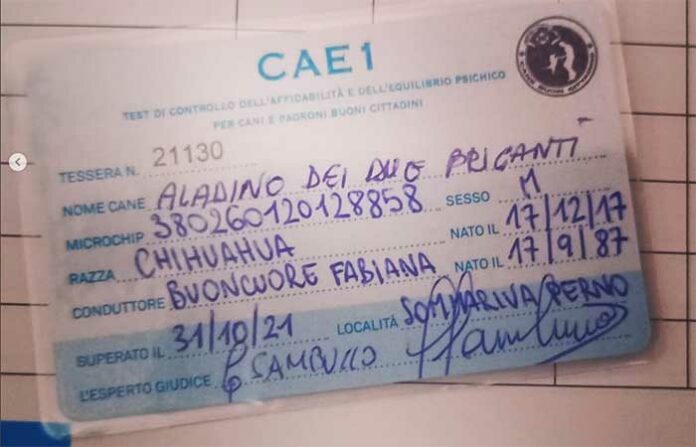 CAE1
TEST DI CONTROLLO DELL'AFFIDABILITÀ E DELL'EQUILIBRIO PSICHICO
PER CANI E PADRONI BUONI CITTADINI
TESSERA N. 21130
NOME CANE ALADINO DEI DUE BRIGANTI
MICROCHIP 380260120128858 SESSO M
RAZZA CHIHUAHUA NATO IL 17/12/17
CONDUTTORE BUONCUORE FABIANA NATO IL 17/9/87
SUPERATO IL 31/10/21 LOCALITÀ SOMMARIVA PERNO
L'ESPERTO GIUDICE SAMBUCCO